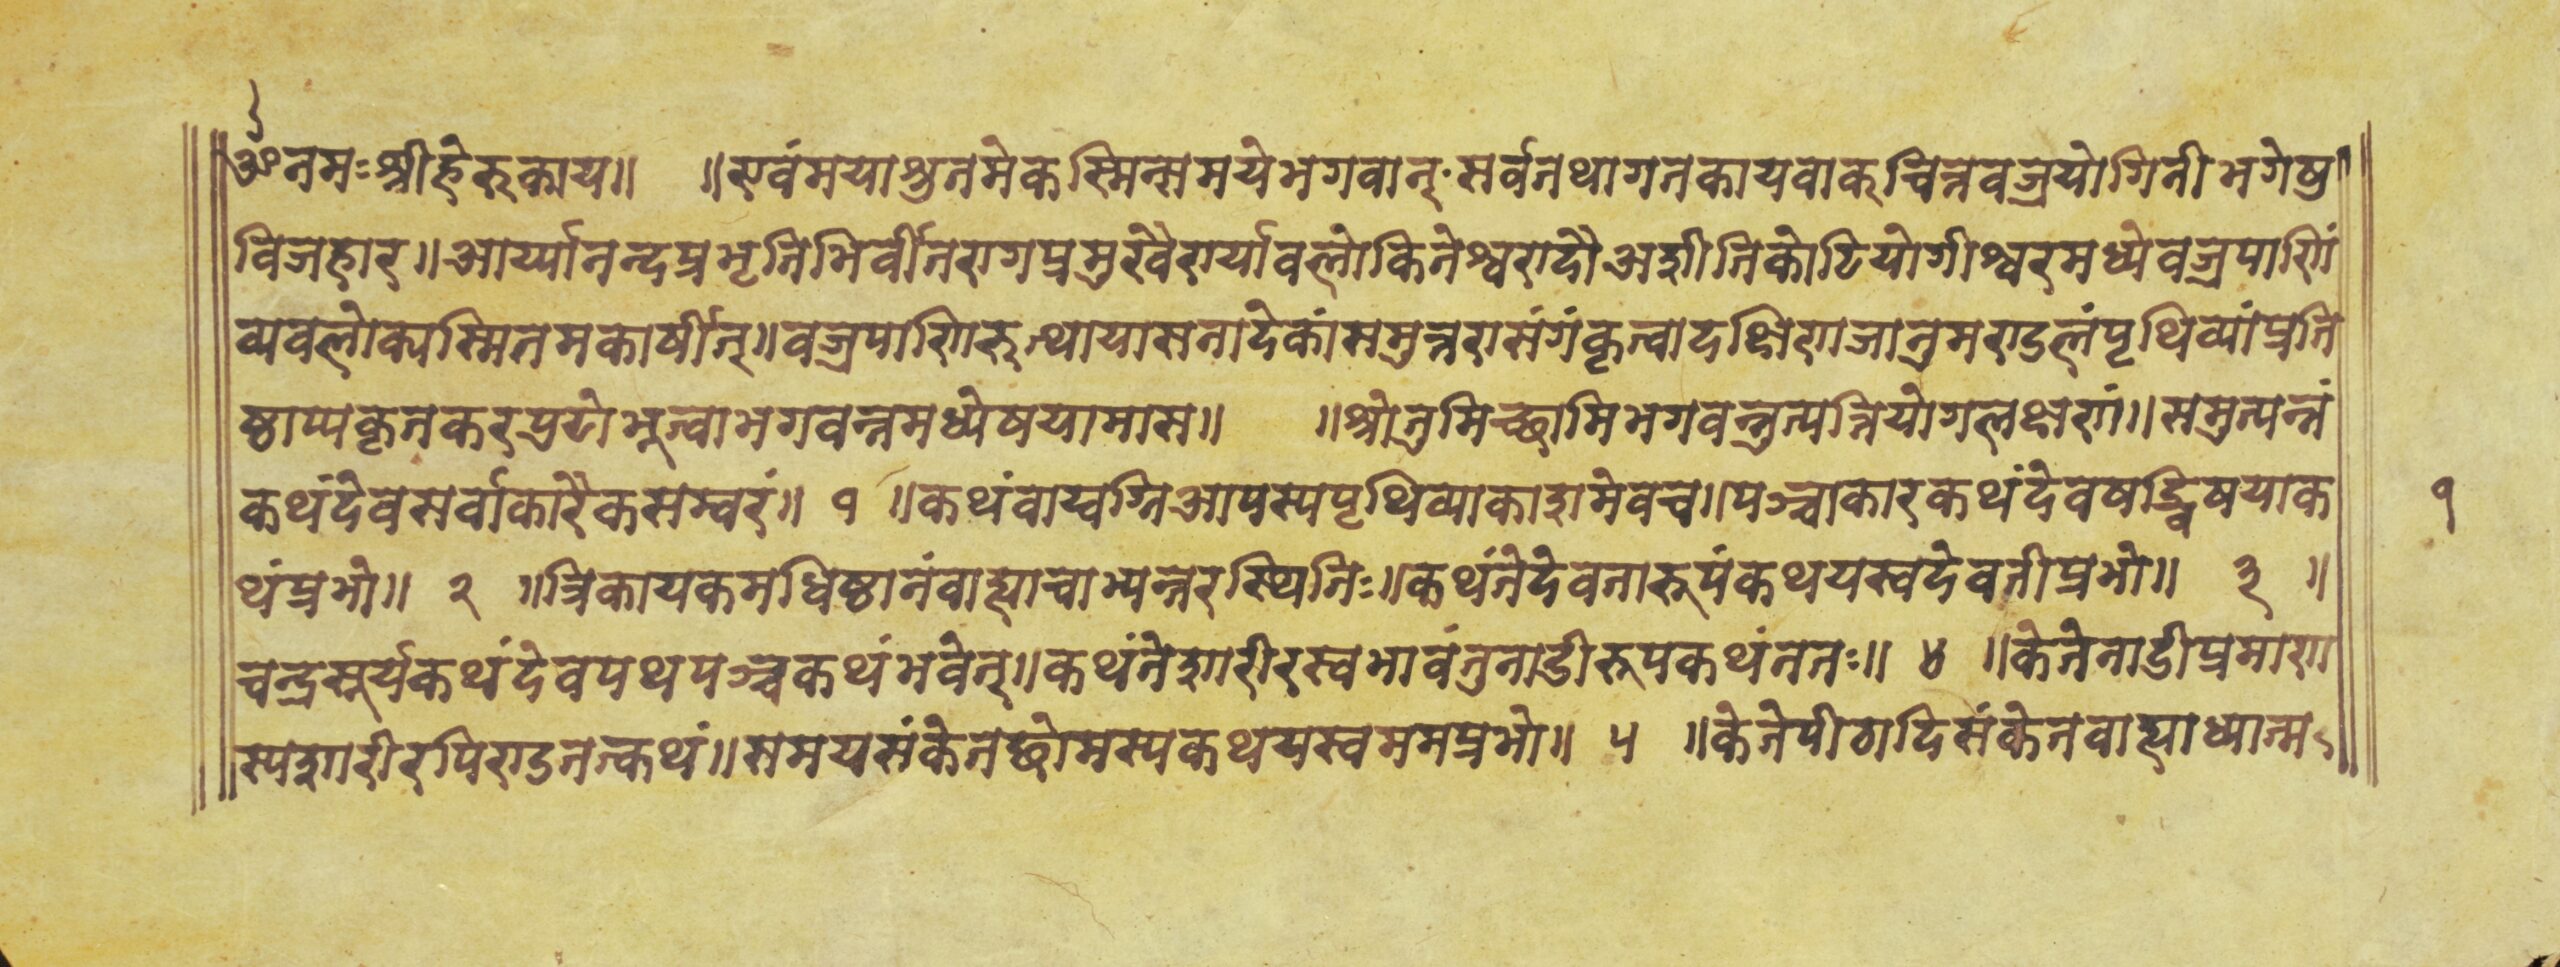 ॐनमःश्रीहेरुकाय॥ ॥एवंमयाश्रुतमेकस्मिन्समयेभगवान्·सर्वतथागतकायवाक्चित्तवज्रयोगिनीभगेषु
विजहार॥आर्य्यानन्दप्रभृतिभिर्वीतरागप्रमुखैरार्यावलोकितेश्वरादौअशीतिकोटियोगीश्वरमध्येवज्रपाणिं
व्यवलोक्यस्मितमकार्षीत्॥वज्रपाणिरुत्थायासनादेकांसमुत्तरासंगंकृत्वादक्षिणजानुमण्डलंपृथिव्यांप्रति
ष्ठाप्यकृतकरपुटोभूत्वाभगवन्तमध्येषयामास॥ ॥श्रोतुमिच्छामिभगवन्तुत्पत्तियोगलक्षणं॥समुत्पन्नं
कथंदेवसर्वाकारैकसम्वरं॥ १ ॥कथंवाय्वग्निआपस्यपृथिव्याकाशमेवच॥पञ्चाकारकथंदेवषड्विषयाक
थंप्रभो॥ २ ॥त्रिकायकमधिष्ठानंवाह्याचाभ्यन्तरस्थितिः॥कथंतेदेवतारूपंकथयस्वदेवतीप्रभो॥ ३ ॥
चन्द्रसूर्यकथंदेवपथपञ्चकथंभवेत्॥कथंतेशरीरस्वभावंतुनाडीरूपकथंततः॥ ४ ॥केतेनाडीप्रमाण
स्यशरीरपिण्डतत्कथं॥समयसंकेतछोमस्यकथयस्वममप्रभो॥ ५ ॥केतेपीठादिसंकेतवाह्याध्यात्म
१